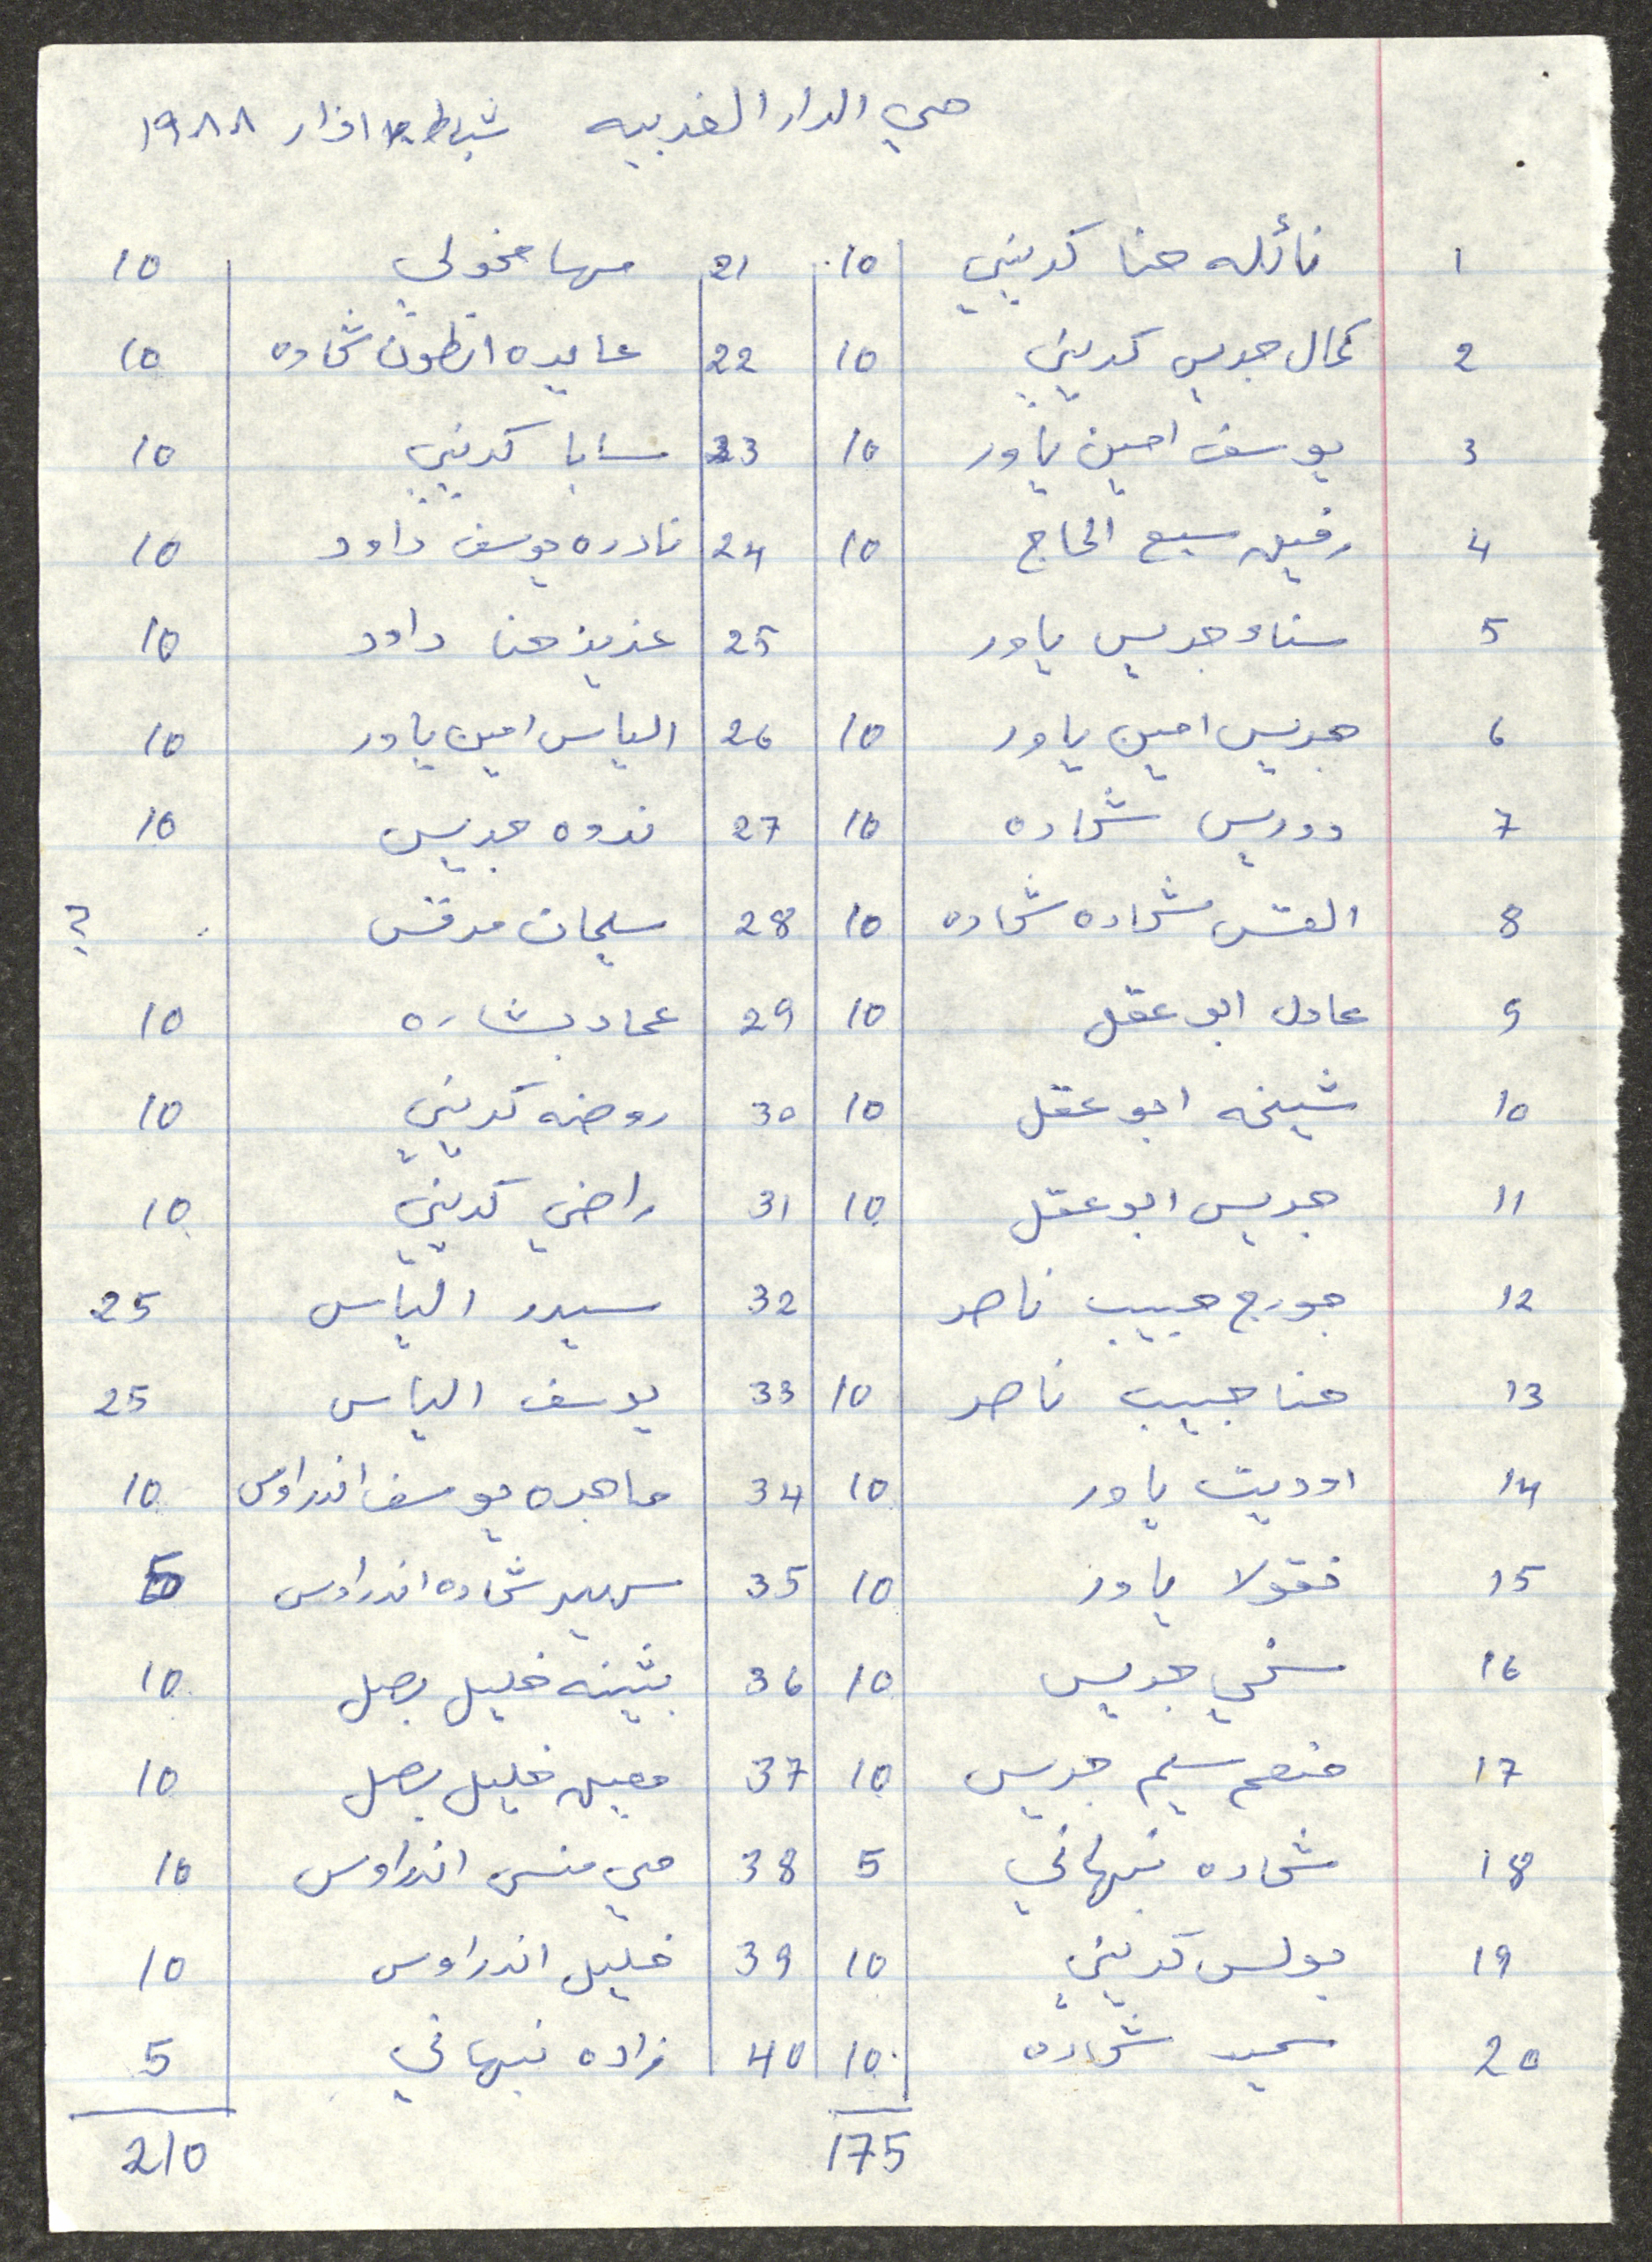 حي الدار الغربيه شباط اذار ١٩٨٨
1 نائله حنا كريني 10 21 مها مخولي 10
2 كمال جريس كريني 10 22 عايده انطون شحاده 10
3 يوسف امين ياور 10 23 سابا كريني 10
4 رفيق سبع الحاج 10 24 نادره يوسف داود 10
5 سناء جريس ياور 25 عزيز حنا داود 10
6 جريس امين ياور 10 26 الياس امين ياور 10
7 دوريس شحاده 10 27 ندوه جريس 10
8 القس شحاده شحاده 10 28 سليمان مرقس ?
9 عادل ابو عقل 10 29 عماد بشاره 10
10 شيخه ابو عقل 10 30 روضه كريني 10
11 جريس ابو عقل 10 31 راضي كريني 10
12 جورج حبيب ناصر 32 سيدر الياس 25
13 حنا حبيب ناصر 10 33 يوسف الياس 25
14 اوديت ياور 10 34 ماهره يوسف اندراوس 10
15 نقولا ياور 10 35 سهير شحاده اندراوس 5
16 سخي جريس 10 36 بثينه خليل بصل 10
17 منعم سليم جريس 10 37 معين خليل بصل 10
18 شحاده نبهاني 5 38 مي منسى اندراوس 10
19 بولس كريني 10 39 خليل اندراوس 10
20 سمير شحاده 10 40 نبهاني 5
175 210